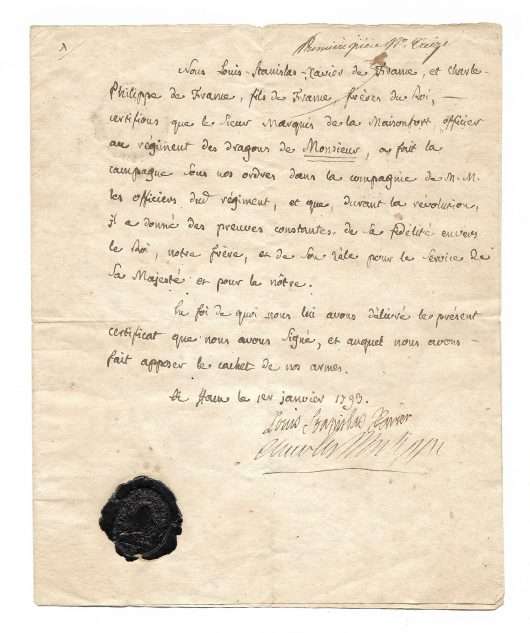 Première pièce No. Treize
Nous Louis-Stanislas-Xavier de France, et Charle-
Philippe de France, fils de France, frères du Roi,
certifions que le sieur Marquis de la Maisonfort officier
au régiment des dragons de Monsieur, a fait la
campagne sous nos ordres dans la compagnie de M. M.
les officiers dud régiment, et que, durant la révolution,
il a donné des preuves constantes de sa fidélité envers
le Roi, notre frère, et de son zèle pour le service de
Sa Majesté et pour la nôtre.
En foi de quoi nous lui avons délivré le présent
certificat que nous avons signé, et auquel nous avons
fait apposer le cachet de nos armes.
A Ham le 1er janvier 1793.
Louis Stanislas Xavier
Charles Philippe